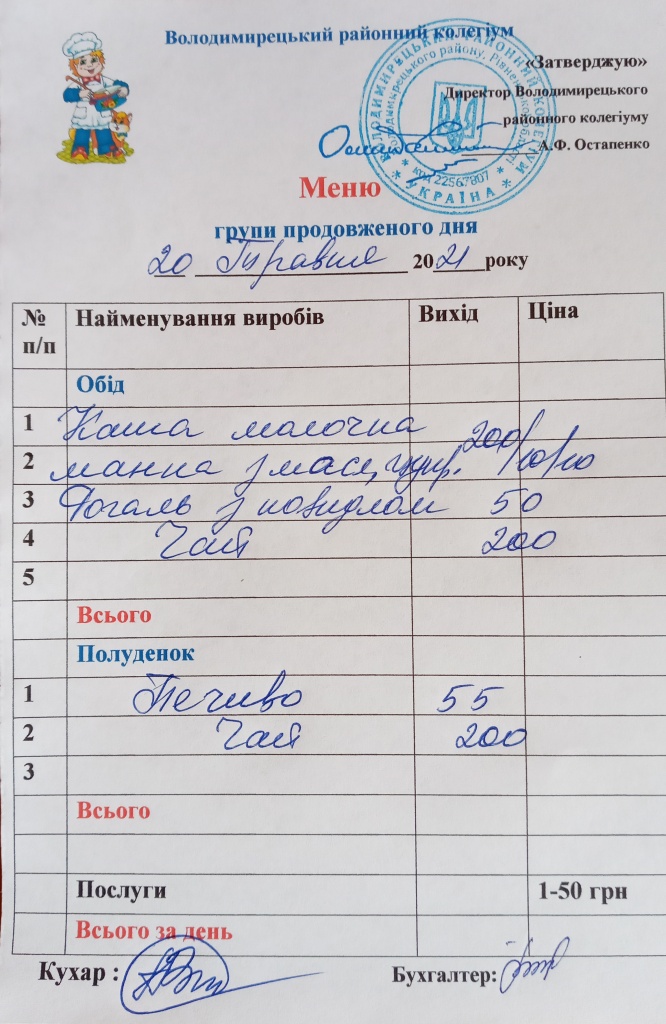 Володимирецький районний колегіум
«Затверджую»
Директор Володимирецького
районного колегіуму
А.Ф. Остапенко
ВОЛОДИМИРЕЦЬКИЙ РАЙОННИЙ КОЛЕГІУМ
Володимирецького району, Рівненської області
код 22567807
УКРАЇНА
Меню
групи продовженого дня
20 Травня 2021 року
№ п/п Найменування виробів Вихід Ціна
Обід
1 Каша молочна 200/
2 манна з масл, цукр. /10/10
3 Рогаль з повидлом 50
4 Чай 200
5
Всього
Полуденок
1 Печиво 55
2 Чай 200
3
Всього
Послуги 1-50 грн
Всього за день
Кухар : Бухгалтер: